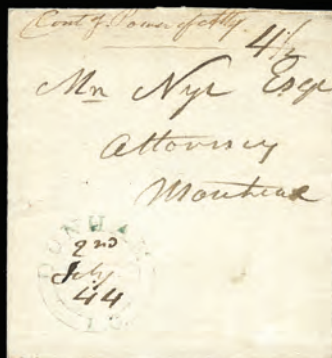 Cont of Power of Atty.
4½
Mn Nye Esqe
Attorney
Montreal
DUNHAM
2nd
July
44
L.C.